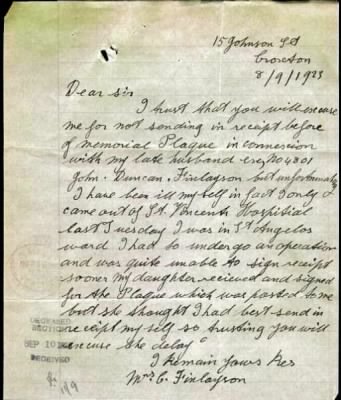 15 Johnson St
Croxton
8/9/1923
Dear sir
I trust that you will excuse
me for not sending in receipt before
of memorial Plaque in connexion
with my late husband No 4801
John. Duncan. Finlayson but unfortunately
I have been ill my self in fact I only
came out of St. Vincents Hospitial
last Tuesday I was in St Angelos
ward I had to undergo an operation
and was quite unable to sign receipt
sooner My daughter recieved and signed
for the Plaque which was posted to me
but she thought I had best send in
reciept my self so trusting you will
excuse the delay
I remain yours Res
Mrs C. Finlayson
DECEASED
SECTION
SEP 10
RECEIVED